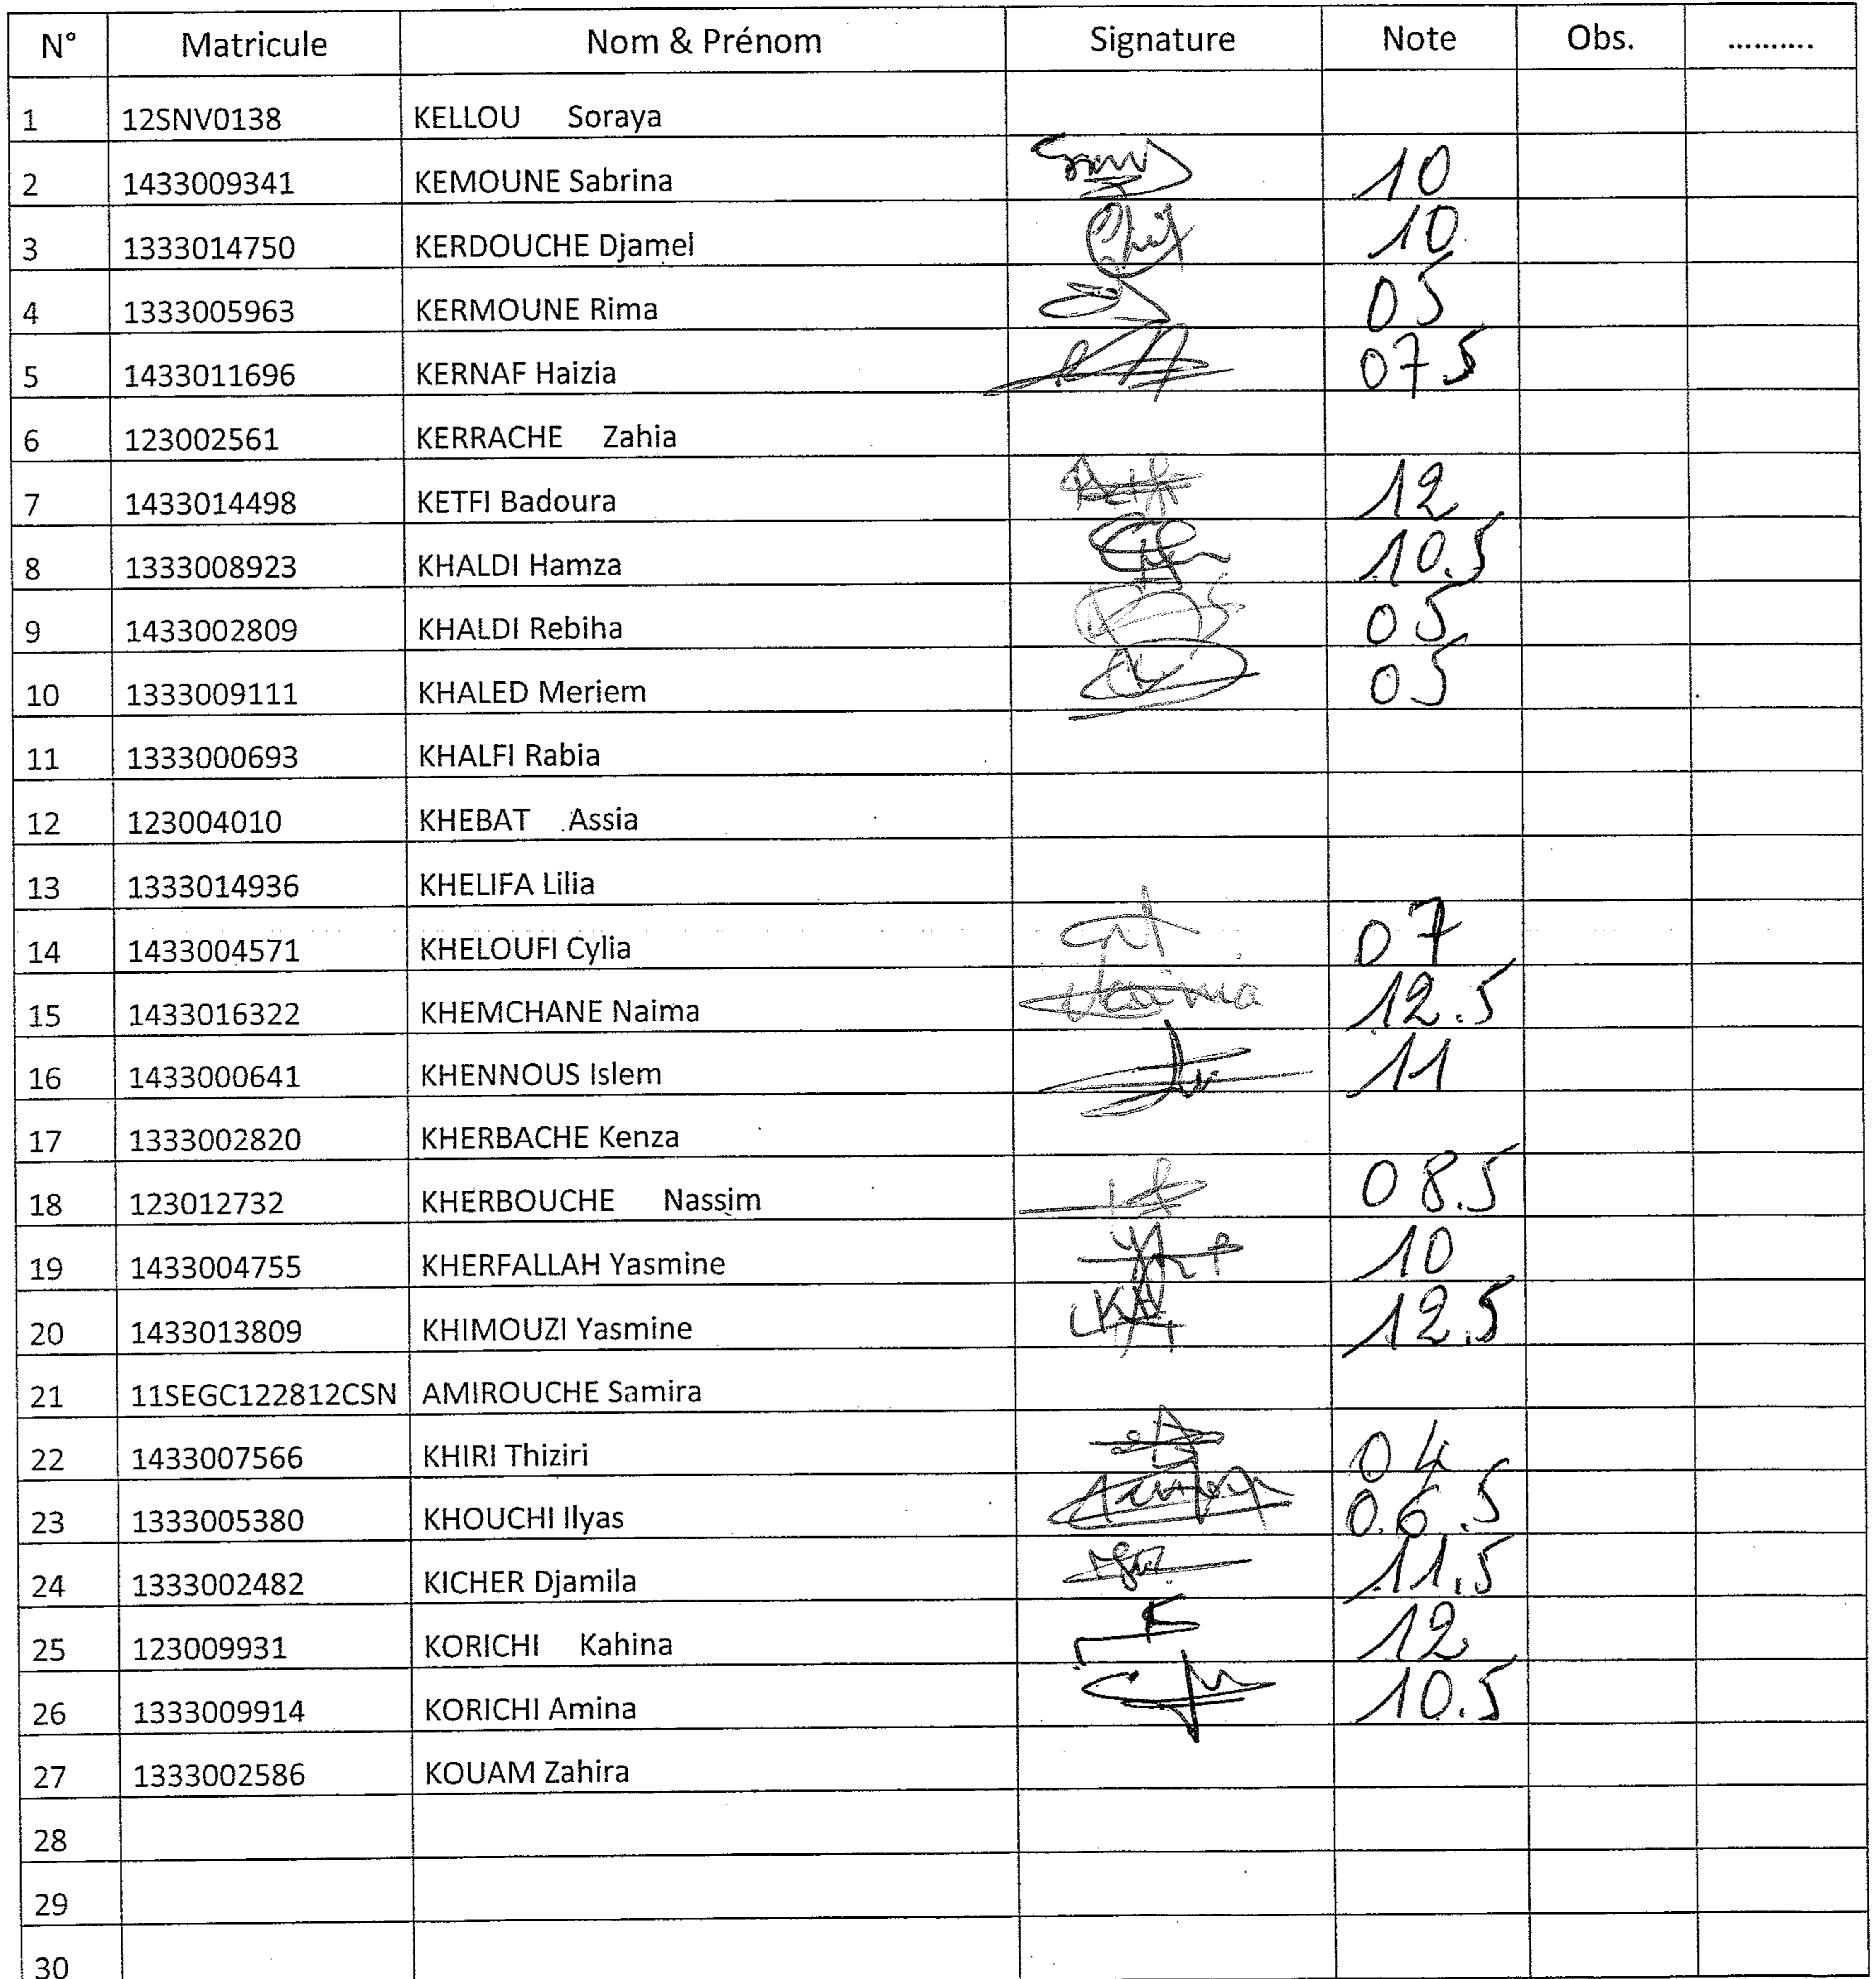 N° Matricule Nom & Prénom Signature Note Obs. ..........
1 12SNV0138 KELLOU Soraya
2 1433009341 KEMOUNE Sabrina 10
3 1333014750 KERDOUCHE Djamel 10
4 1333005963 KERMOUNE Rima 05
5 1433011696 KERNAF Haizia 07.5
6 123002561 KERRACHE Zahia
7 1433014498 KETFI Badoura 12
8 1333008923 KHALDI Hamza 10.5
9 1433002809 KHALDI Rebiha 05
10 1333009111 KHALED Meriem 05
11 1333000693 KHALFI Rabia
12 123004010 KHEBAT Assia
13 1333014936 KHELIFA Lilia
14 1433004571 KHELOUFI Cylia 07
15 1433016322 KHEMCHANE Naima 12.5
16 1433000641 KHENNOUS Islem 11
17 1333002820 KHERBACHE Kenza
18 123012732 KHERBOUCHE Nassim 08.5
19 1433004755 KHERFALLAH Yasmine 10
20 1433013809 KHIMOUZI Yasmine 12.5
21 11SEGC122812CSN AMIROUCHE Samira
22 1433007566 KHIRI Thiziri 04
23 1333005380 KHOUCHI Ilyas 06.5
24 1333002482 KICHER Djamila 11.5
25 123009931 KORICHI Kahina 12
26 1333009914 KORICHI Amina 10.5
27 1333002586 KOUAM Zahira
28
29
30